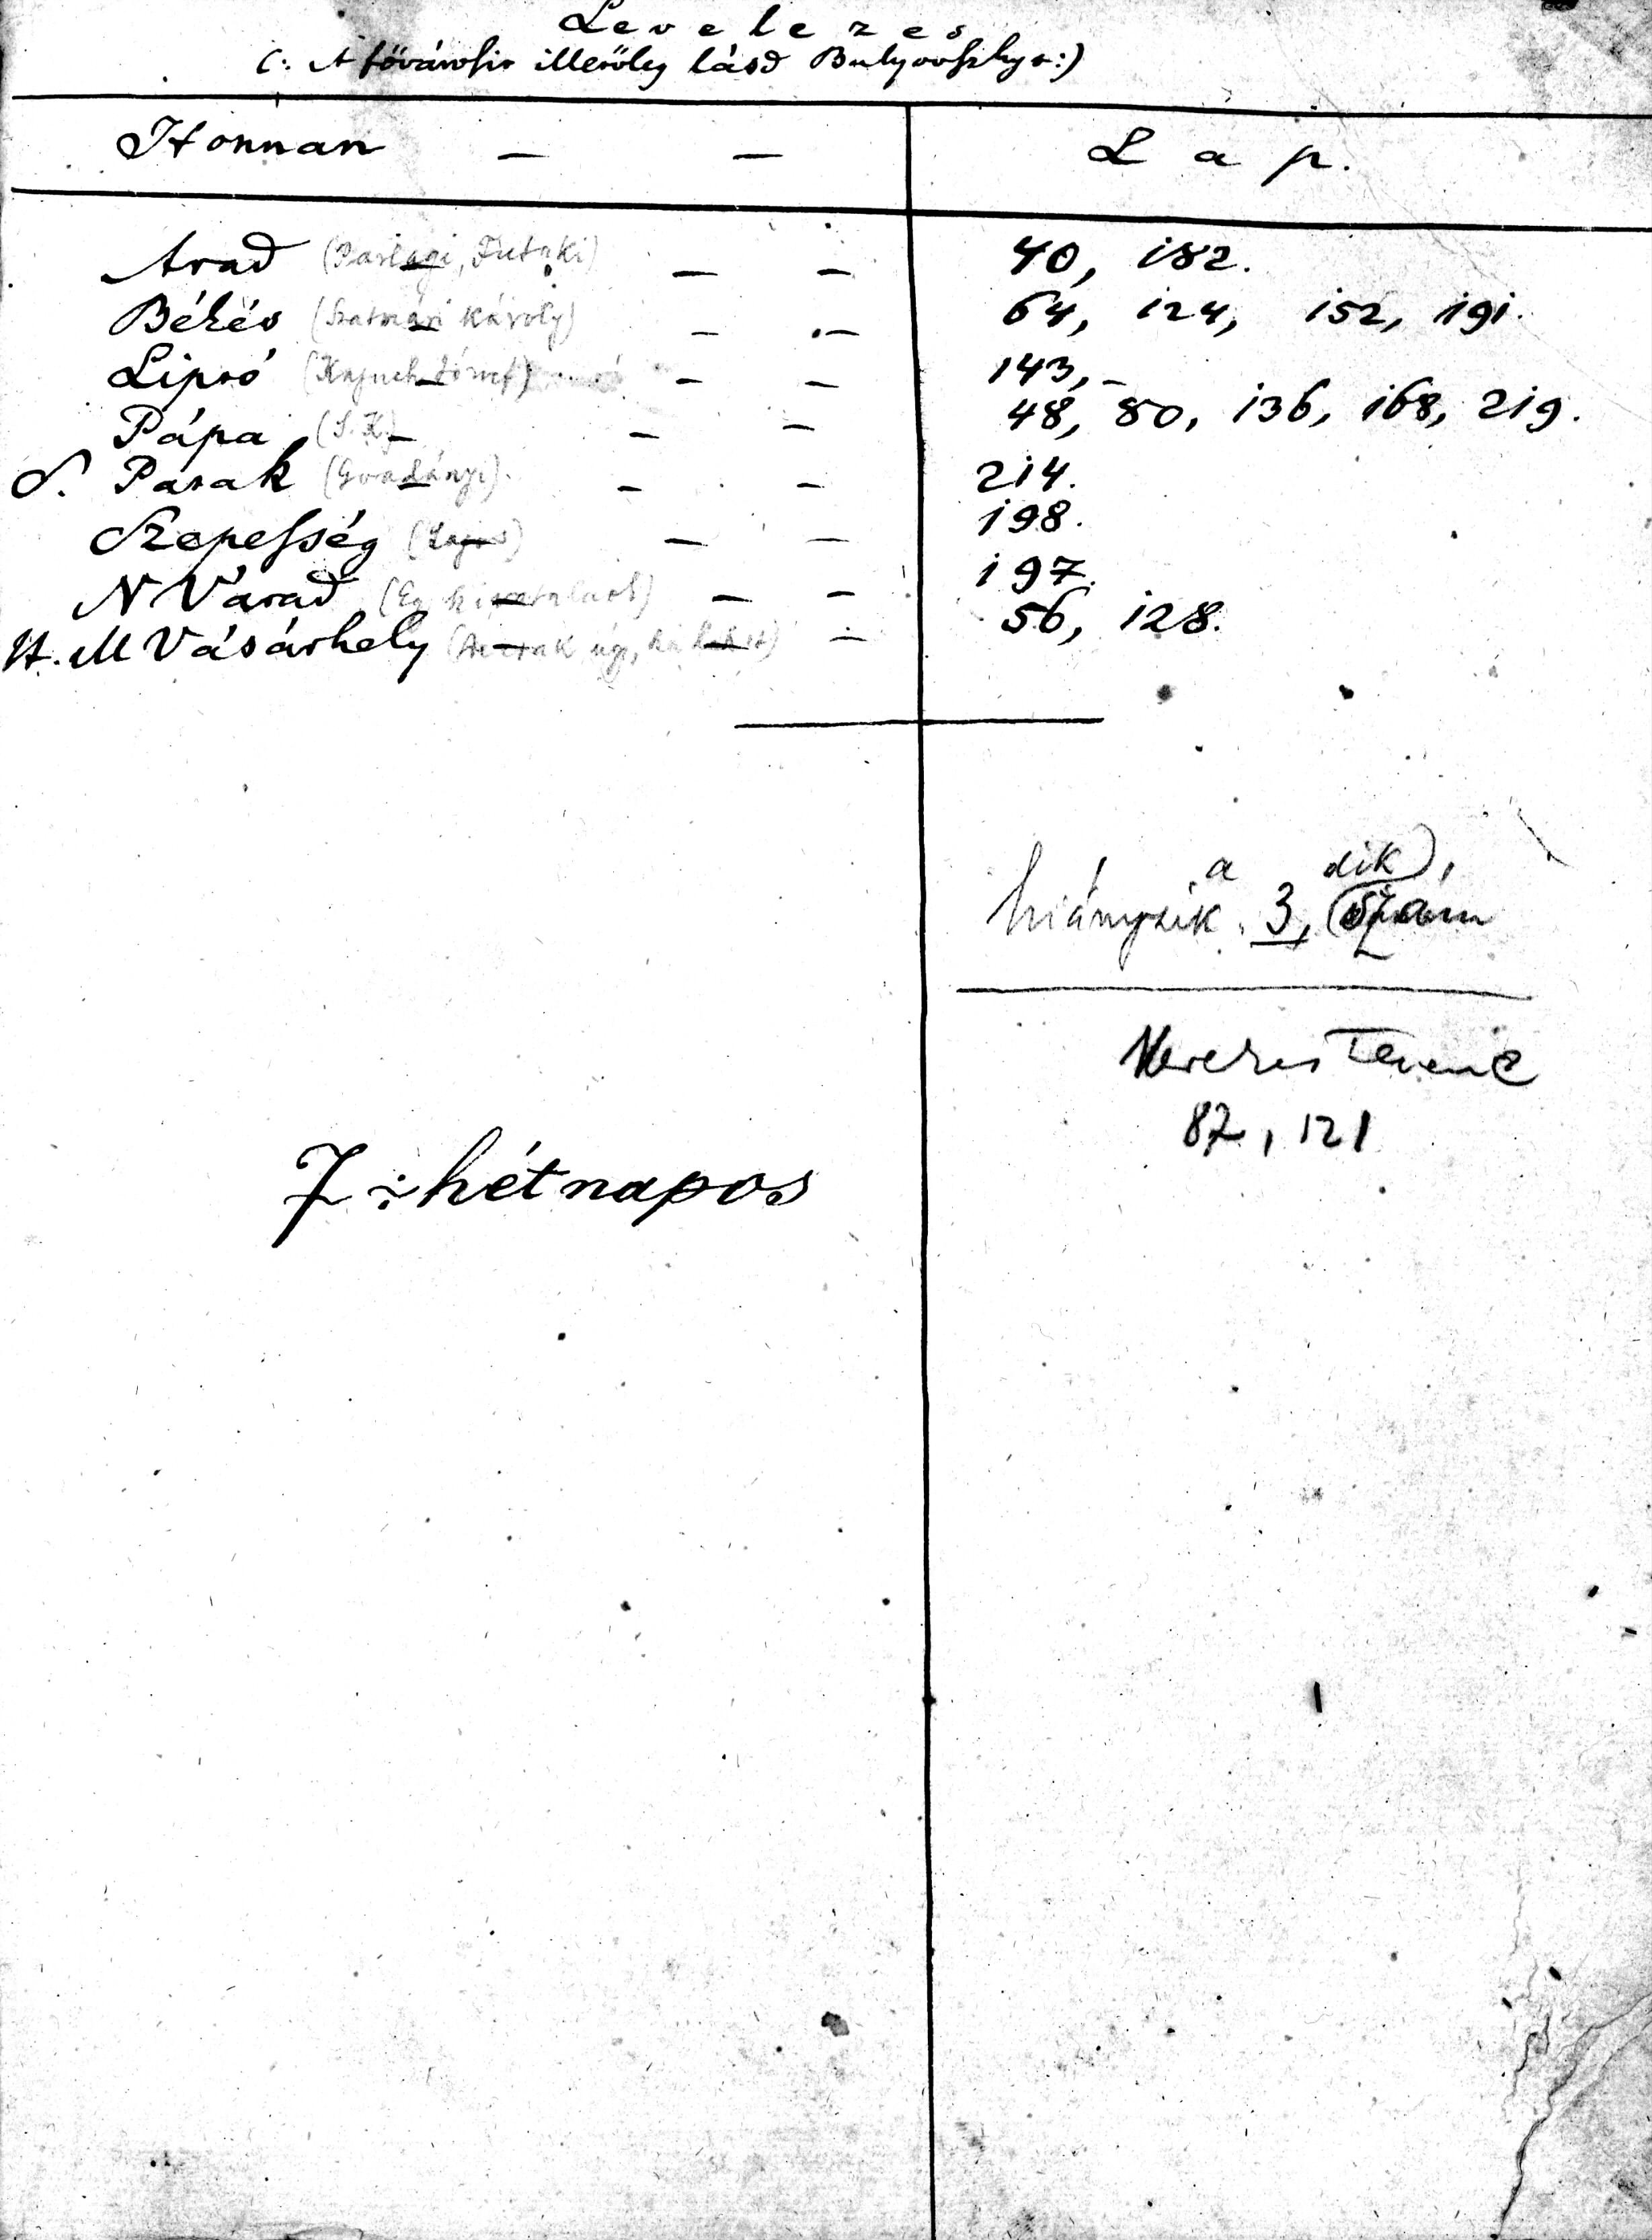 Levelezés
(: A fővárosit illetőleg lásd Bulyovszky:)
Honnan — — Lap.
Arad (Parlagi, Futaki) — — 40, 182.
Békés (Szatmári Károly) — — 64, 124, 152, 191.
Liptó (József) — — 143,
Pápa (S. K.) — — 48, 80, 136, 168, 219.
S. Patak (Gvadányi) — — 214.
Szepesség — — 198.
N Várad (Egy hivatalnok) — — 197.
H. M Vásárhely — 56, 128.
hiányzik a 3, dik szám
Ferenc
87, 121
7 : hétnapos